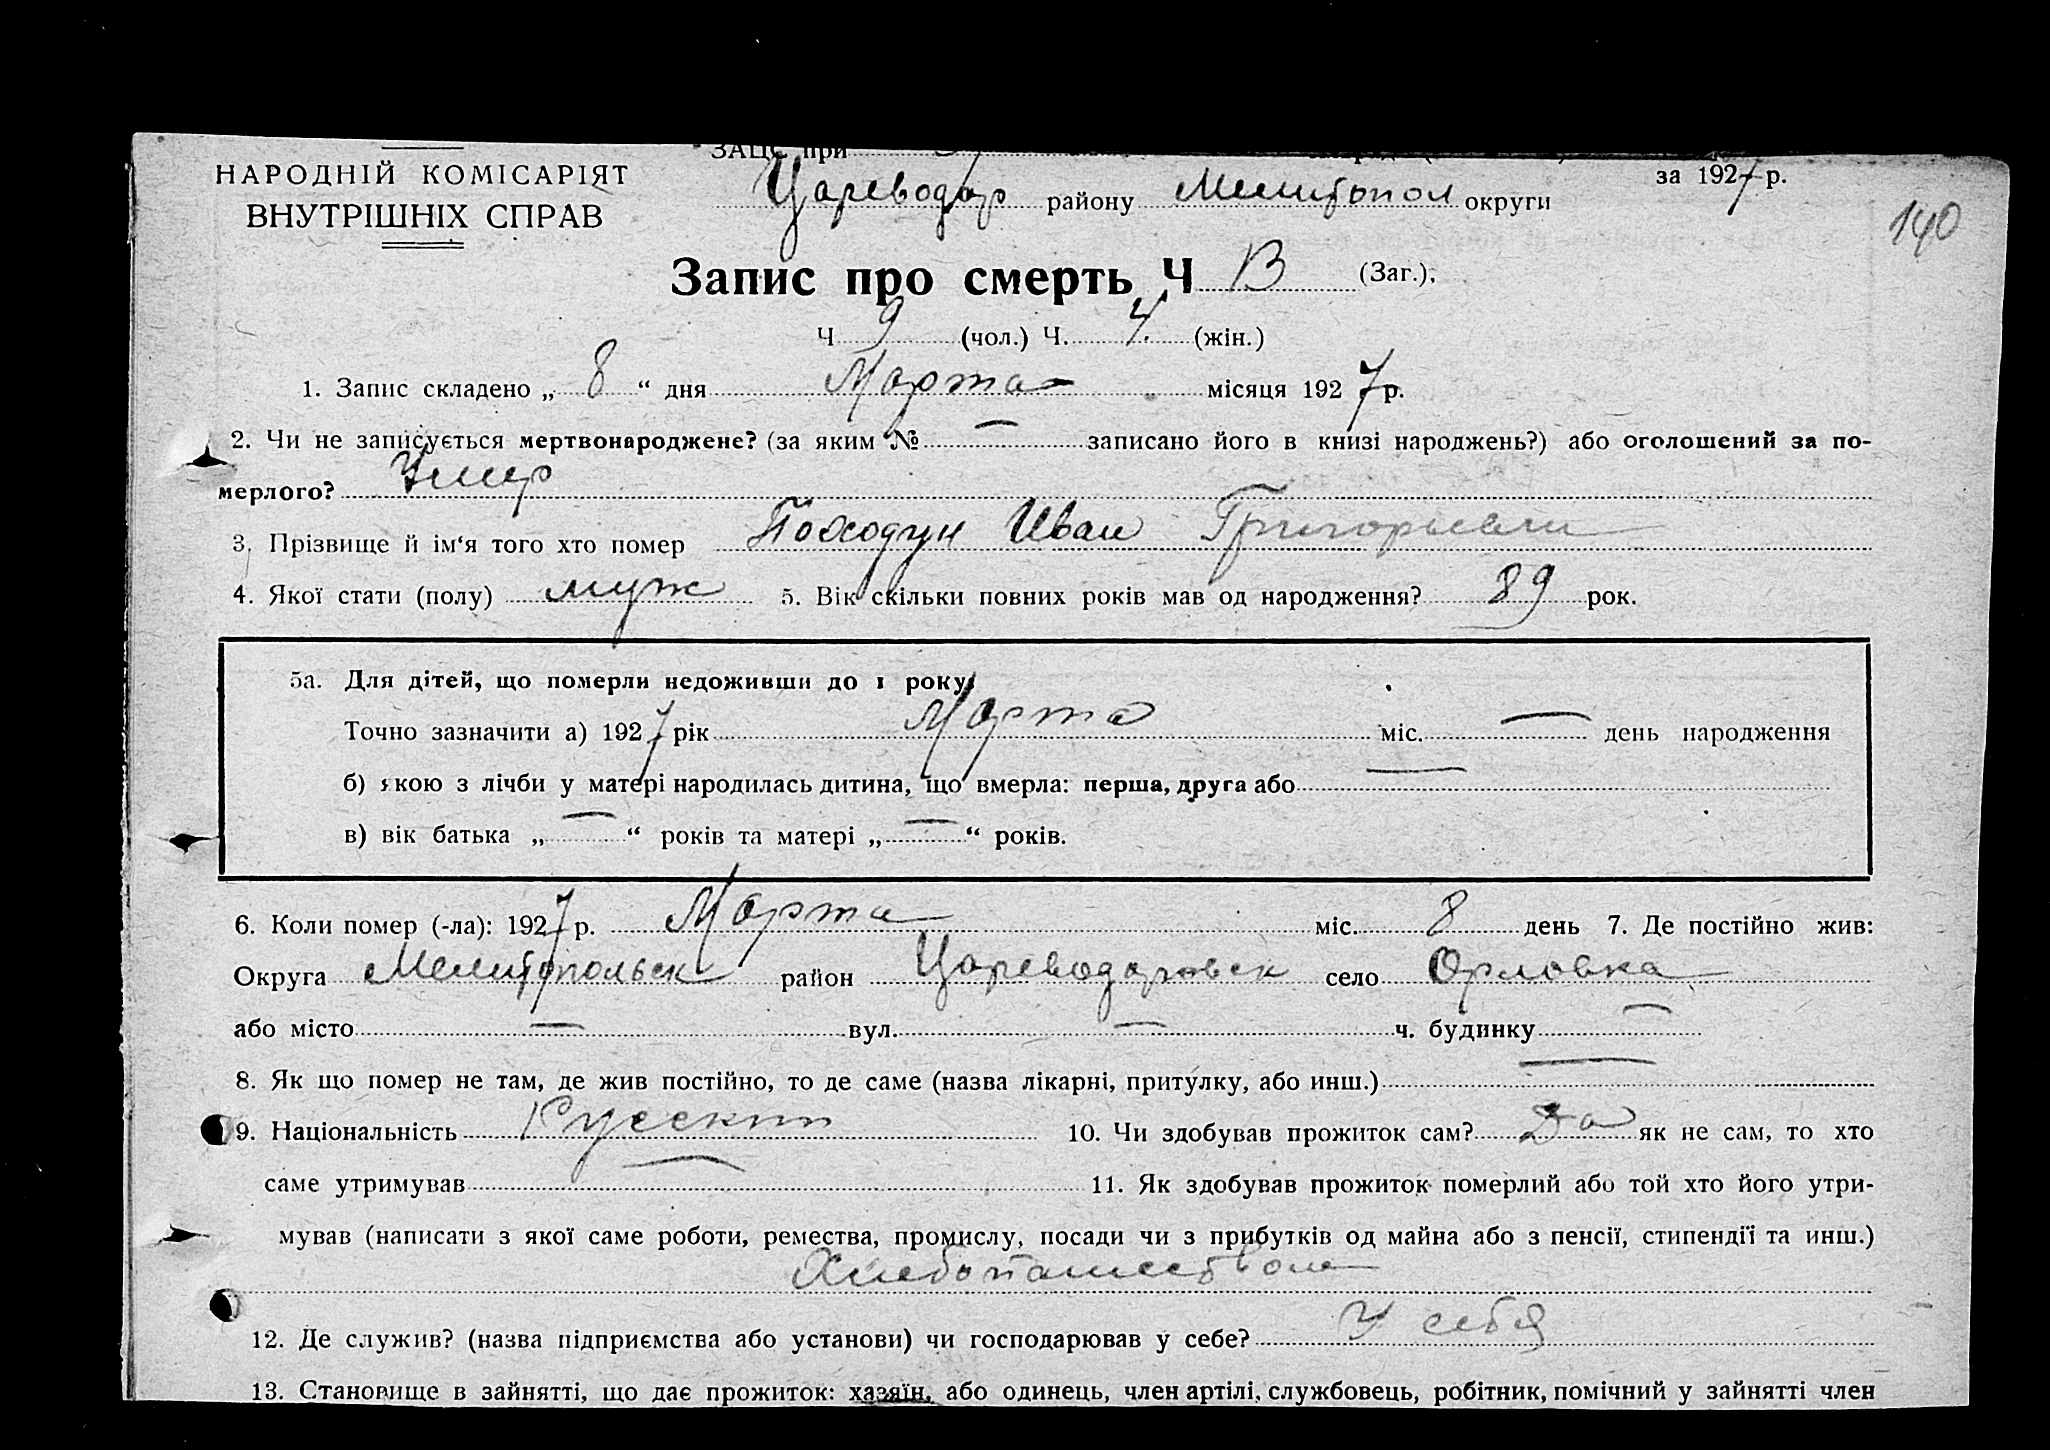 ЗАЦС при
НАРОДНІЙ КОМІСАРІЯТ
ВНУТРІШНІХ СПРАВ
за 1927 р.
Цареводар району Мелитопол округи
140
Запис про смерть Ч 13 (Заг.),
Ч 9 (чол.) Ч. 4. (жін.)
1. Запис складено „ 8 “ дня Марта місяця 1927 р.
2. Чи не записується мертвонароджене? (за яким № — записано його в книзі народжень?) або оголошений за по-
мерлого? Умер
3. Прізвище й ім‘я того хто помер Походун Иван Григорьевич
4. Якої стати (полу) муж 5. Вік скільки повних років мав од народження? 89 рок.
5а. Для дітей, що померли недоживши до 1 року:
Точно зазначити а) 1927 рік Марта міс. — день народження
б) якою з лічби у матері народилась дитина, що вмерла: перша, друга або —
в) вік батька „ — “ років та матері „ — “ років.
6. Коли помер (-ла): 1927 р. Марта міс. 8 день 7. Де постійно жив:
Округа Мелитопольск район Цареводаровск село Орловка
або місто — вул. — ч. будинку —
8. Як що помер не там, де жив постійно, то де саме (назва лікарні, притулку, або инш.) —
9. Національність Русский 10. Чи здобував прожиток сам? Да як не сам, то хто
саме утримував — 11. Як здобував прожиток померлий або той хто його утри-
мував (написати з якої саме роботи, ремества, промислу, посади чи з прибутків од майна або з пенсії, стипендії та инш.)
Хлебопашеством
12. Де служив? (назва підприємства або установи) чи господарював у себе? У себя
13. Становище в зайнятті, що дає прожиток: хазяїн, або одинець, член артілі, службовець, робітник, помічний у зайнятті член